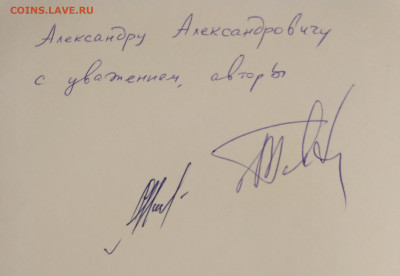 COINS.LAVE.RU
Александру Александровичу
с уважением, авторы